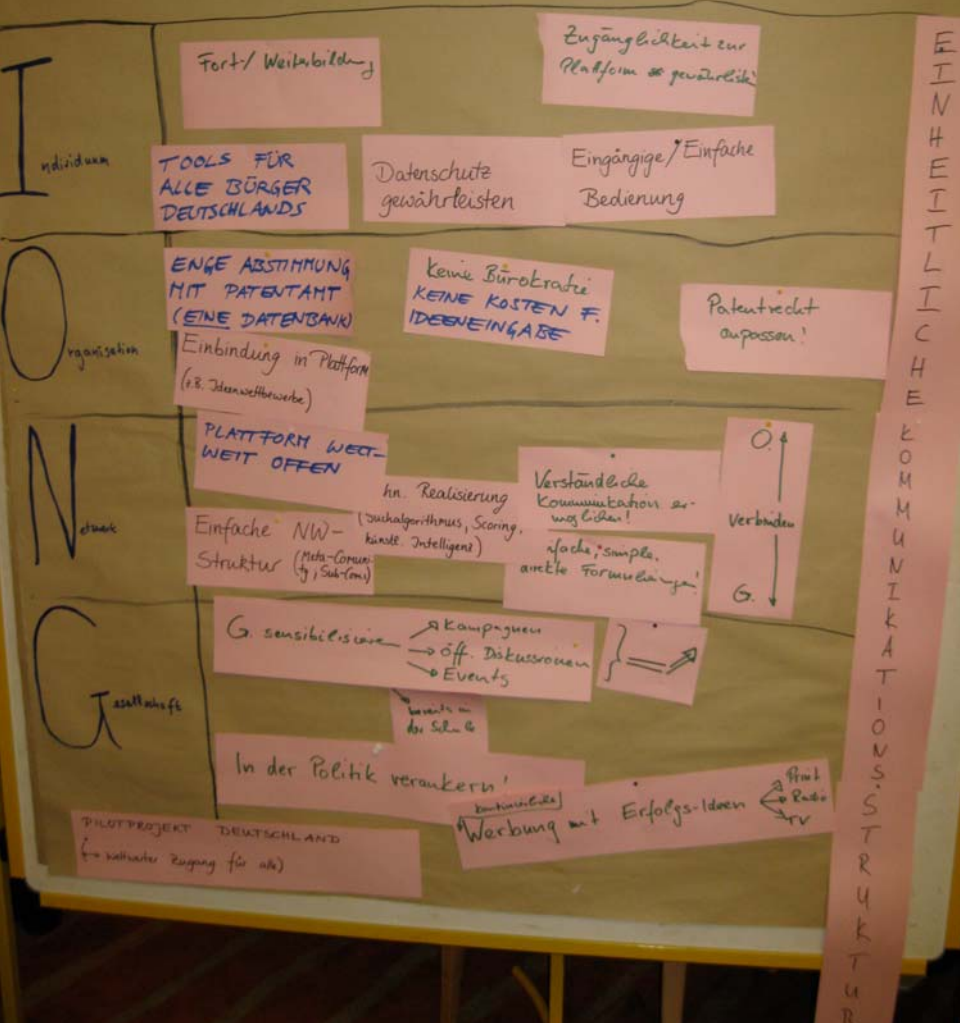 Individuum
Fort-/Weiterbildung
Zugänglichkeit zur
Plattform gewährleist
TOOLS FÜR
ALLE BÜRGER
DEUTSCHLANDS
Datenschutz
gewährleisten
Eingängige/Einfache
Bedienung
Organisation
ENGE ABSTIMMUNG
MIT PATENTAMT
(EINE DATENBANK)
Keine Bürokratie
KEINE KOSTEN F.
IDEENEINGABE
Patentrecht
anpassen!
Einbindung in Plattform
(z.B. Ideenwettbewerbe)
Netzwerk
PLATTFORM WELT-
WEIT OFFEN
hn. Realisierung
(Suchalgorithmus, Scoring,
künstl. Intelligenz)
Einfache NW-
Struktur (Meta-Communi-
ty, Sub-Com.)
Verständliche
Kommunikation er-
möglichen!
infache, simple,
direkte Formulierungen!
O.
verbinden
G.
Gesellschaft
G. sensibilisieren
→ Kampagnen
→ öff. Diskussionen
→ Events
bereits in
der Schule
In der Politik verankern!
kontinuierliche
Werbung mit Erfolgs-Ideen
Print
Radio
TV
PILOTPROJEKT DEUTSCHLAND
(→ weltweiter Zugang für alle)
EINHEITLICHE KOMMUNIKATIONS-STRUKTUR